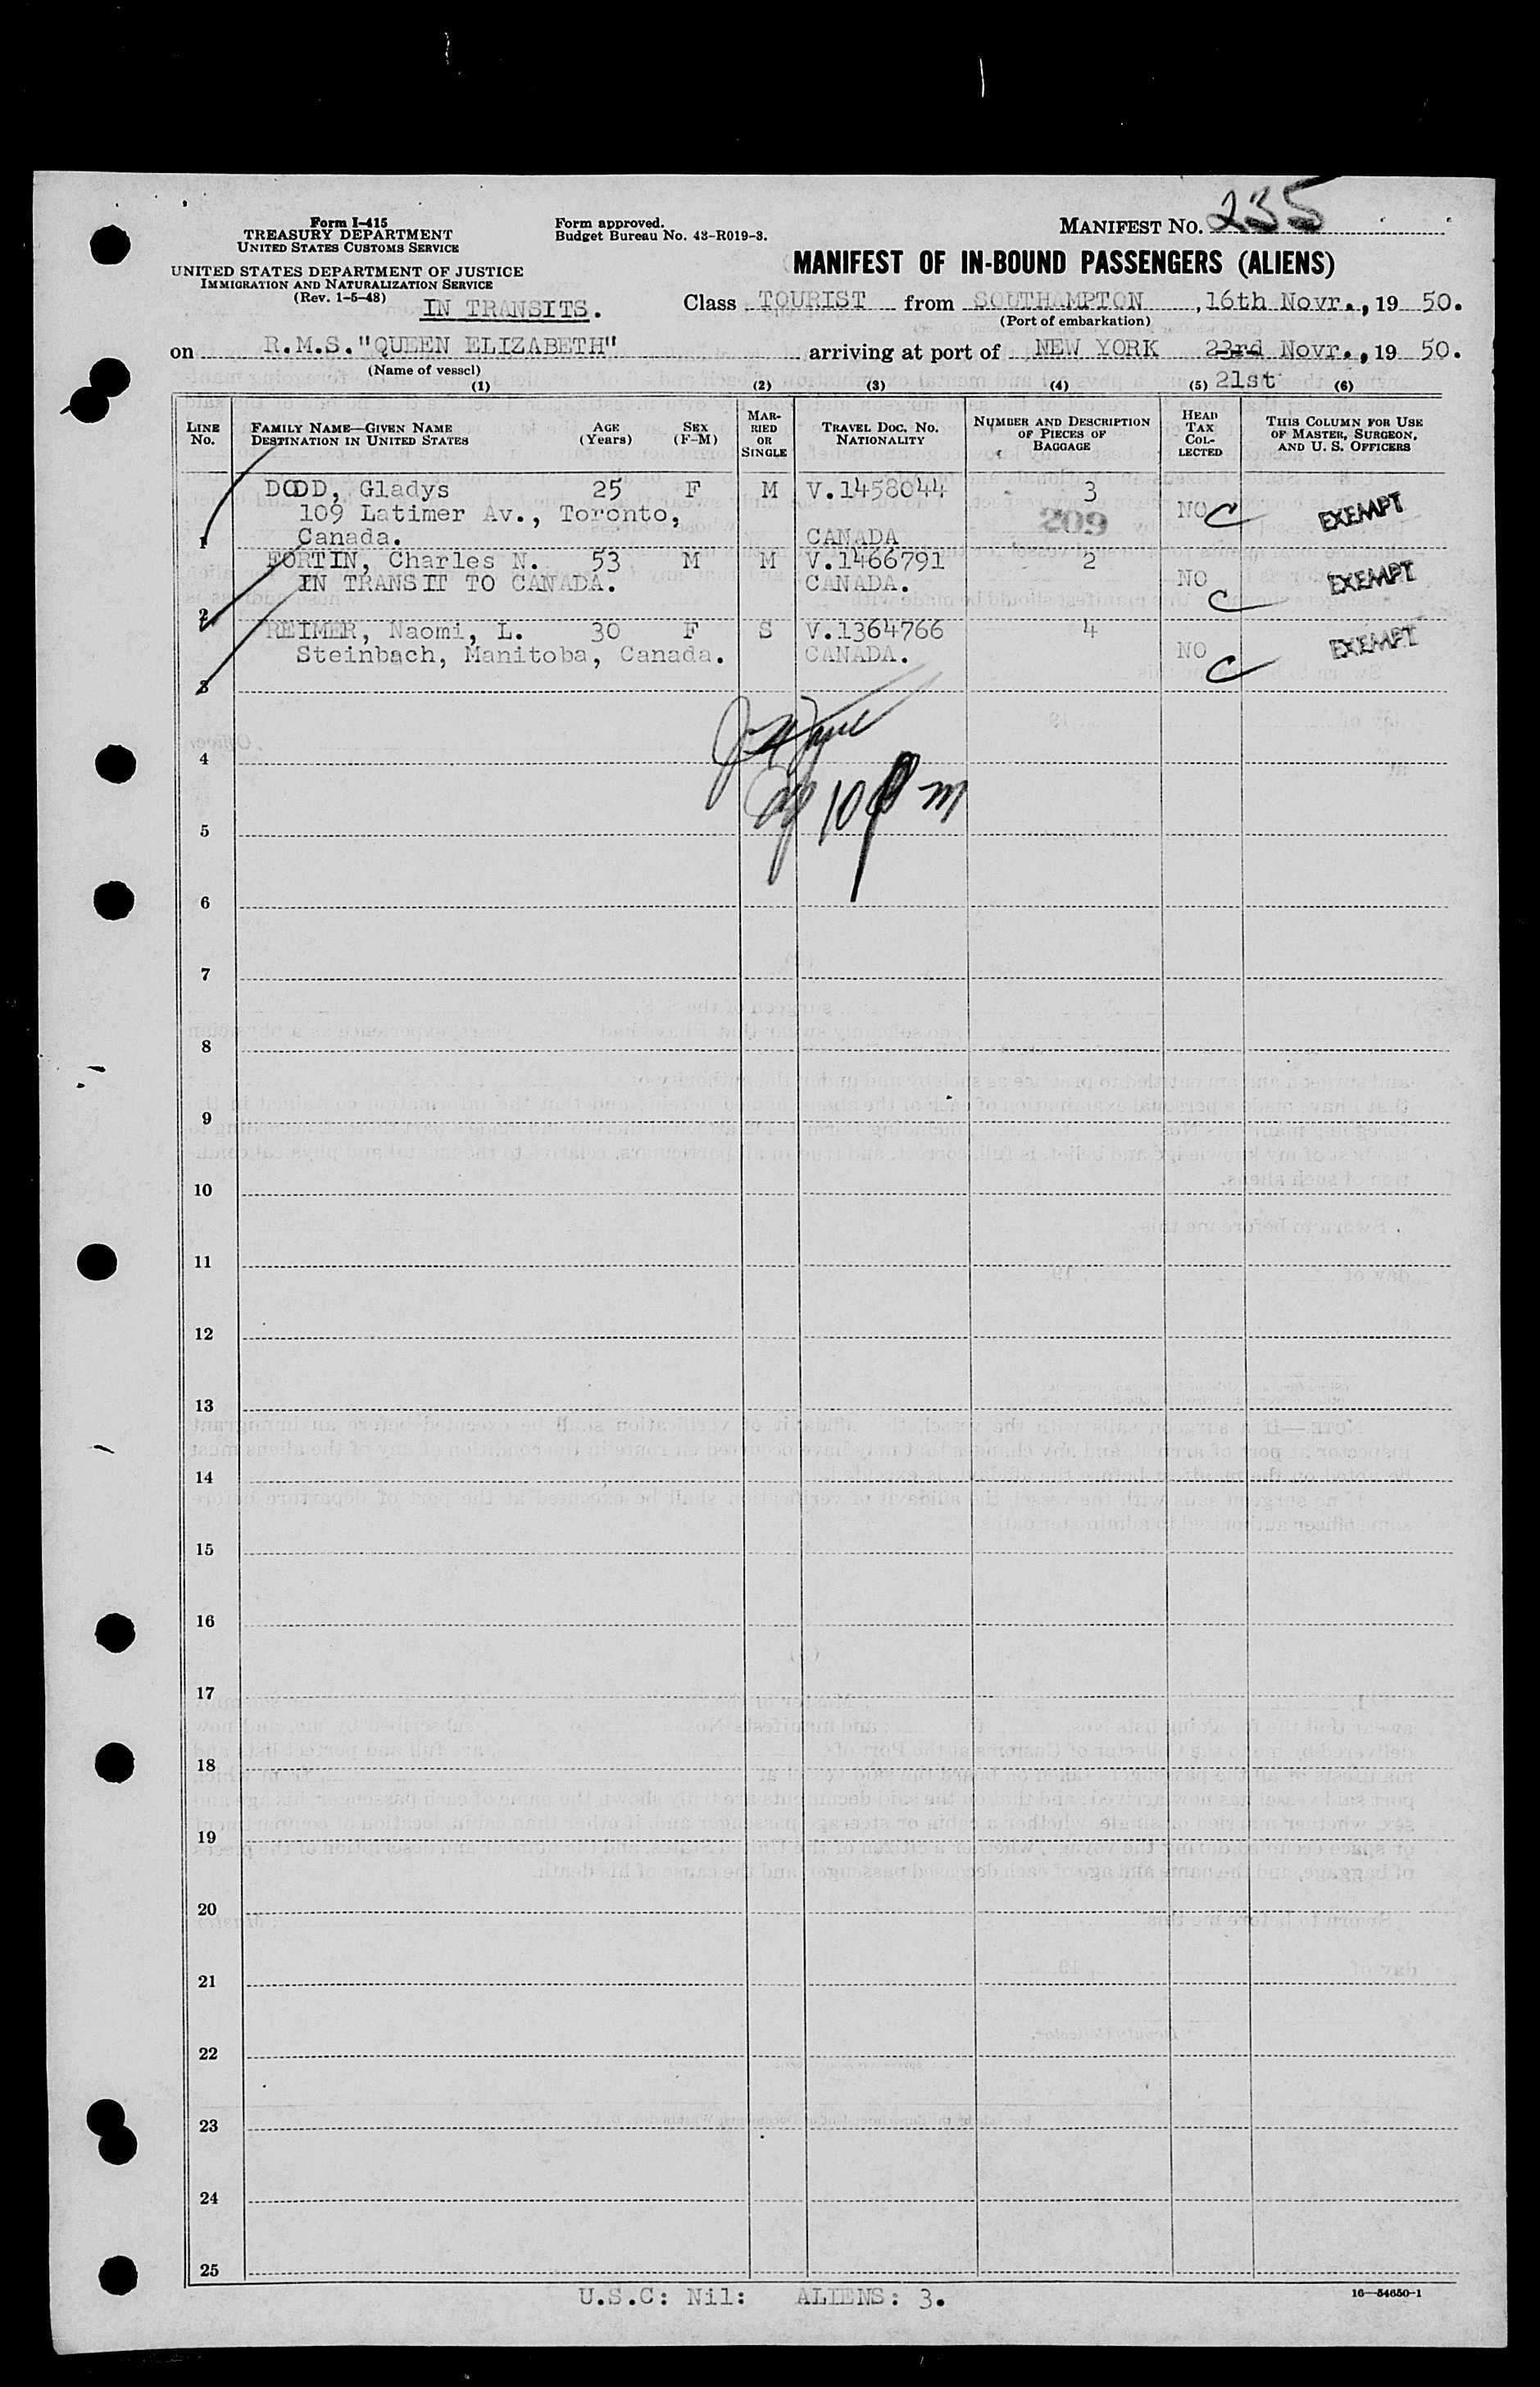 Form I-415
TREASURY DEPARTMENT
UNITED STATES CUSTOMS SERVICE
UNITED STATES DEPARTMENT OF JUSTICE
IMMIGRATION AND NATURALIZATION SERVICE
(Rev. 1-5-48)
IN TRANSITS.
Form approved.
Budget Bureau No. 43-R019-3.
MANIFEST No. 235
MANIFEST OF IN-BOUND PASSENGERS (ALIENS)
Class TOURIST from SOUTHAMPTON, 16th Novr., 19 50.
(Port of embarkation)
on R.M.S."QUEEN ELIZABETH" arriving at port of NEW YORK 23rd Novr., 19 50.
(Name of vessel)
21st
(1) (2) (3) (4) (5) (6)
LINE No. FAMILY NAME—GIVEN NAME DESTINATION IN UNITED STATES AGE (Years) SEX (F-M) MARRIED OR SINGLE TRAVEL DOC. NO. NATIONALITY NUMBER AND DESCRIPTION OF PIECES OF BAGGAGE HEAD TAX COLLECTED THIS COLUMN FOR USE OF MASTER, SURGEON, AND U. S. OFFICERS
DODD, Gladys 25 F M V.1458044 3
109 Latimer Av., Toronto, 209 NO C EXEMPT
1 Canada. CANADA
FORTIN, Charles N. 53 M M V.1466791 2
IN TRANSIT TO CANADA. CANADA. NO C EXEMPT
2
REIMER, Naomi, L. 30 F S V.1364766 4
Steinbach, Manitoba, Canada. CANADA. NO C EXEMPT
3
4
10 pm
5
6
7
8
9
10
11
12
13
14
15
16
17
18
19
20
21
22
23
24
25
U.S.C: Nil: ALIENS: 3.
16—54650-1